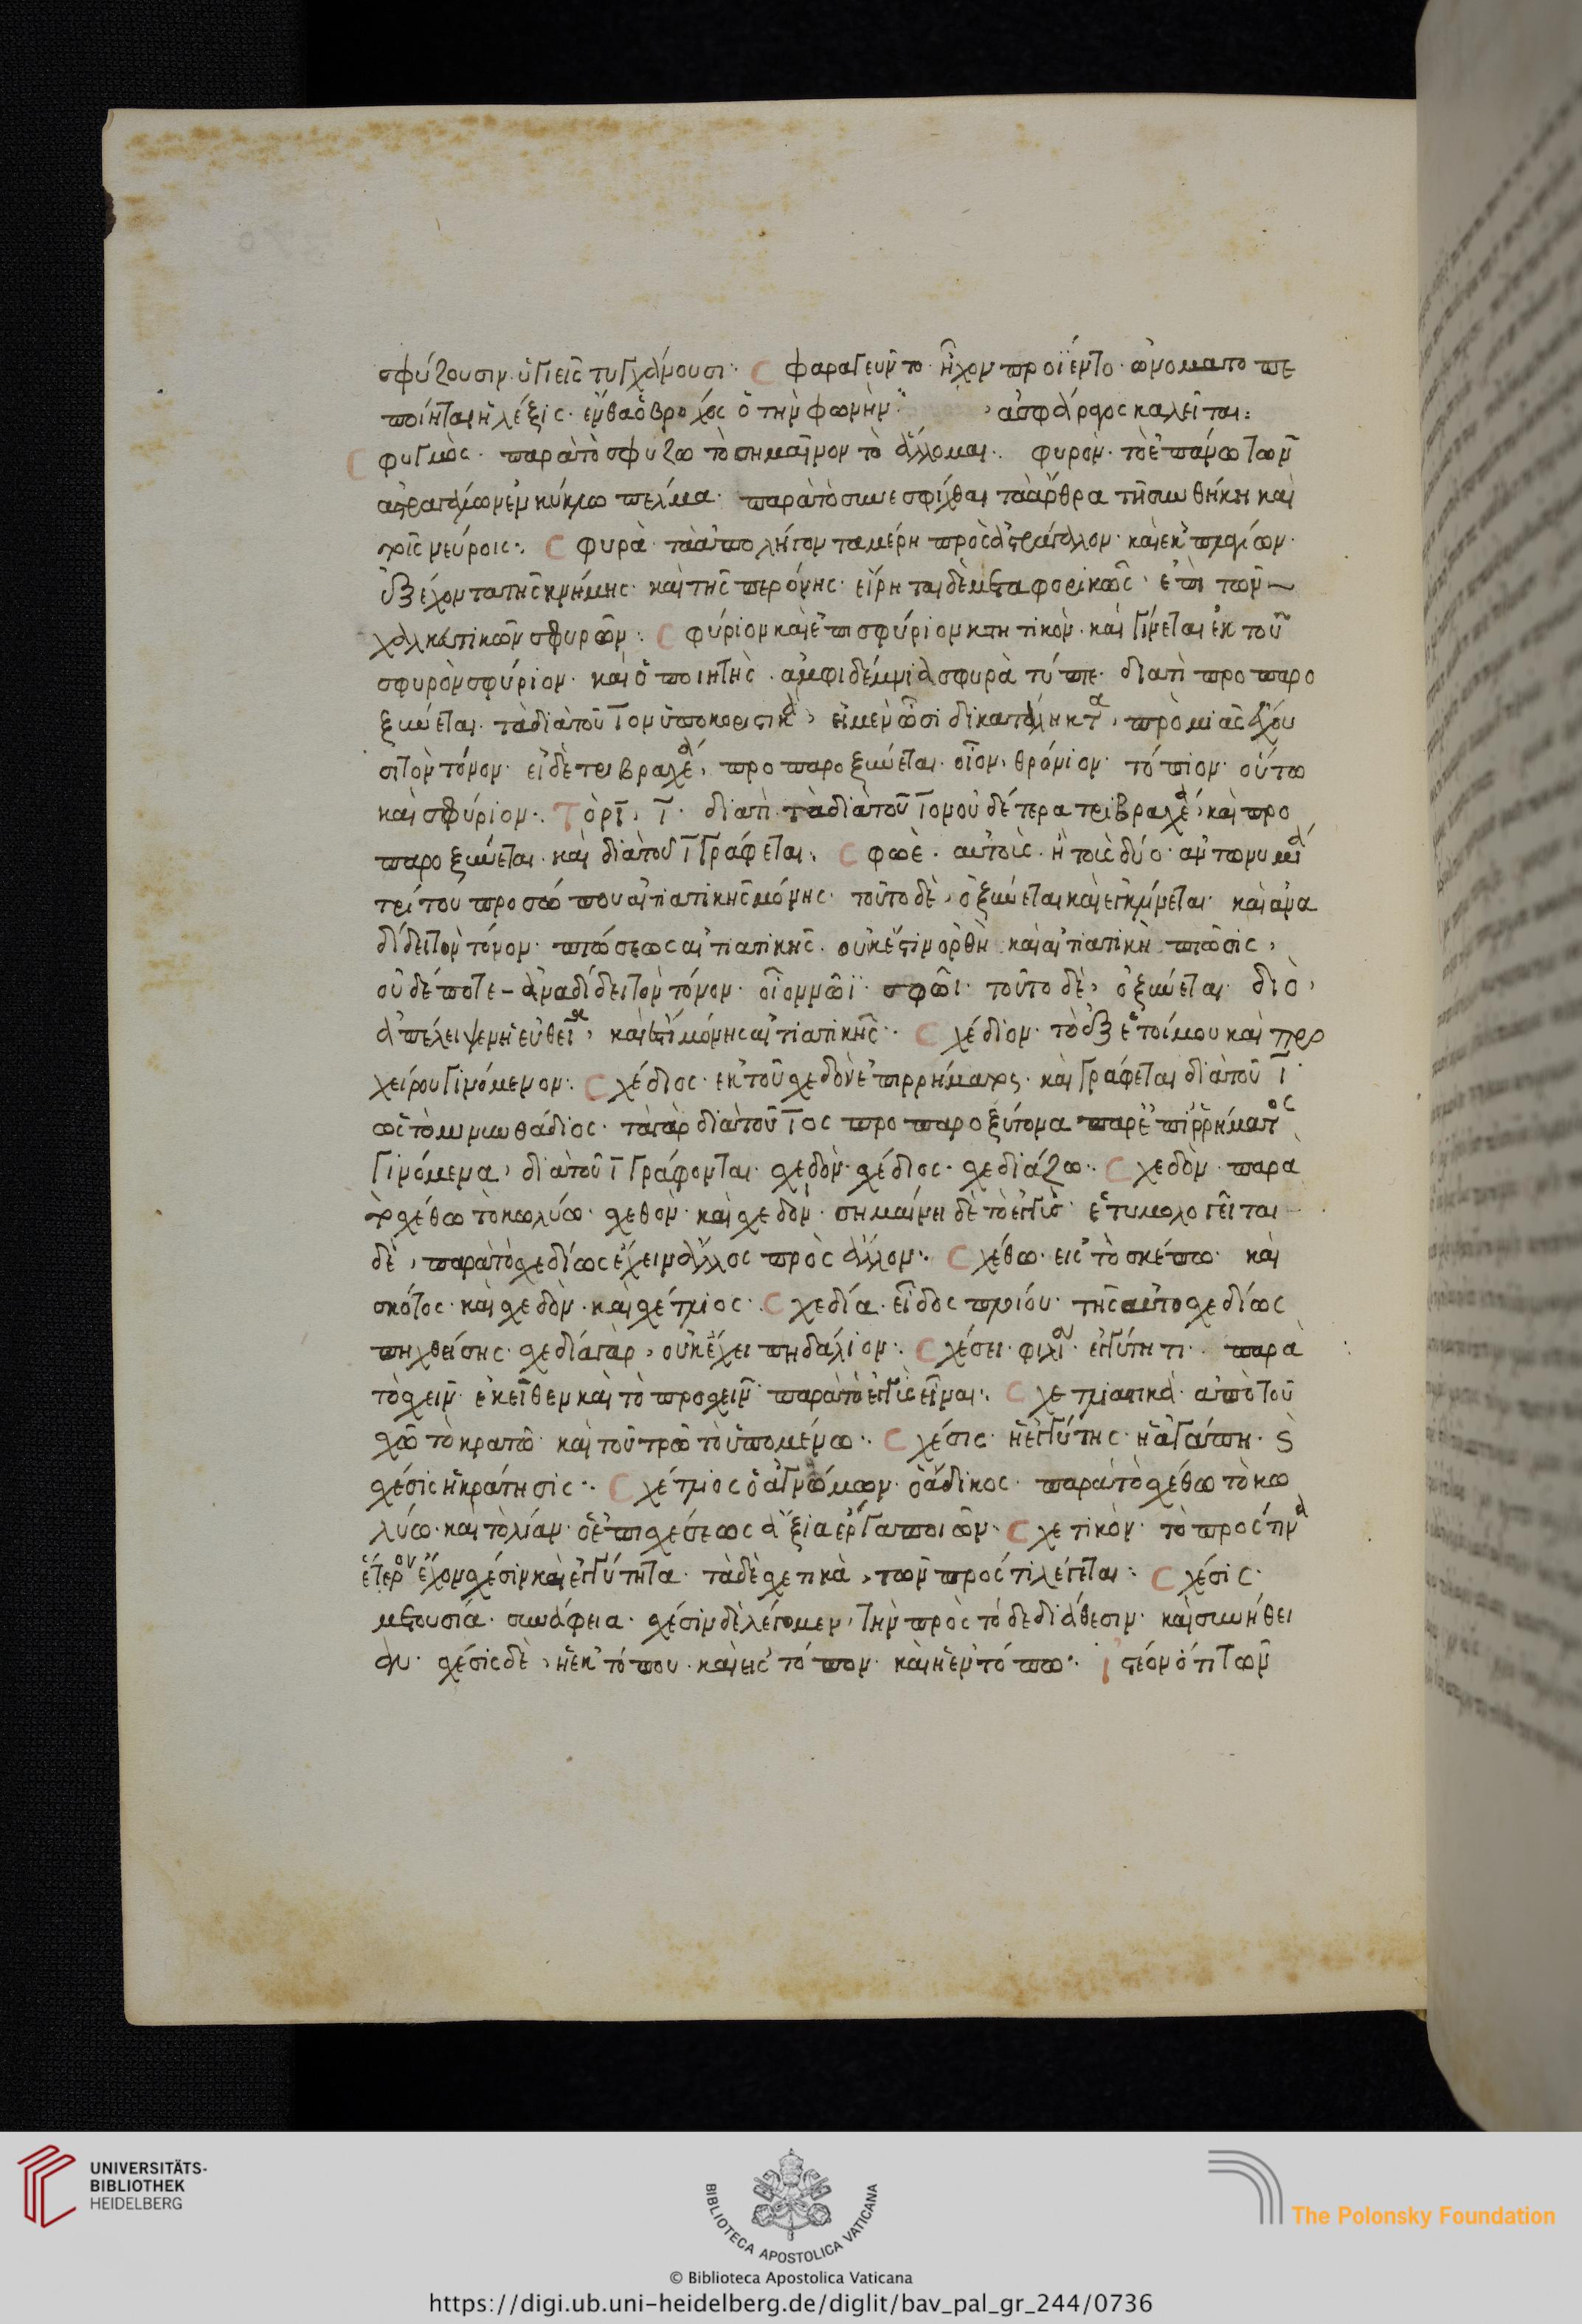 σφύζουσιν ὑγιεῖς τυγχάνουσι· Σφαραγεῦντο· ἦχον προϊέντο· ὠνοματοπε
ποίηται ἡ λέξις· ἔνθα ὁ βρόγχος ὁ τὴν φωνὴν ἀσφάραγος καλεῖται:
Σφυγμὸς· παρὰ τὸ σφύζω τὸ σημαῖνον τὸ ἅλλομαι· σφυρὸν· τὸ ἐπάνω τῶν
ἀστραγάλων ἐν κύκλω πέλμα· παρὰ τὸ συνεσφίχθαι τὰ ἄρθρα τῆ συνθήκη καὶ
τοῖς νεύροις· Σφυρὰ· τὰ ἀπολήγοντα μέρη πρὸς ἀστράγαλον· καὶ ἐκ πλαγίων
ἐξέχοντα τῆς κνήμης· καὶ τῆς περόνης· εἴρηται δὲ μεταφορικῶς· ἐπὶ τῶν
χαλκευτικῶν σφυρῶν· Σφύριον καὶ ἐπισφύριον κτητικὸν· καὶ γίνεται ἐκ τοῦ
σφυρὸν σφύριον· καὶ ὁ ποιητὴς· ἀμφὶ δέ μιν σφυρὰ τύπτε· διατὶ προπαρο
ξύνεται· τὰ διὰ τοῦ ῑον ὑποκοριστικὰ, εἰ μὲν ὦσι δικατάληκτα, πρὸ μιᾶς ἔχου
σι τὸν τόνον· εἰ δὲ τριβραχέα, προπαροξύνεται· οἷον, θρόνιον· τόπιον· οὕτω
καὶ σφύριον· Τὸ ρῑ, ῑ· διατὶ· τὰ διὰ τοῦ ῑον οὐδέτερα τριβραχέα, καὶ προ
παροξύνεται· καὶ διὰ τοῦ ῑ γράφεται· Σφωὲ· αὐτοὶς· ἢ τοὶς δύο· ἀντωνυμία
τρίτου προσώπου αἰτιατικῆς μόνης· τοῦτο δὲ, ὀξύνεται καὶ ἐγκλίνεται· καὶ ἀνα
δίδει τὸν τόνον· πτώσεως αἰτιατικῆς· οὐκ ἔστιν ὀρθὴ καὶ αἰτιατικὴ πτῶσις,
οὐδέποτε ἀναδίδει τὸν τόνον· οἷον νῶϊ· σφῶι· τοῦτο δὲ, ὀξύνεται· διὸ,
ἀπέλειψεν ἡ εὐθεῖα, καὶ ἐστὶ μόνης αἰτιατικῆς· Σχέδιον· τὸ ἐξ ἑτοίμου καὶ προ
χείρου γινόμενον· Σχέδιος· ἐκ τοῦ σχεδὸν ἐπιρρήματος· καὶ γράφεται διὰ τοῦ ῑ
ὡς τὸ μινυνθάδιος· τὰ γὰρ διὰ τοῦ ῑος προπαροξύτονα παρ' ἐπιρρήματος
γινόμενα, διὰ τοῦ ῑ γράφονται· σχεδὸν· σχέδιος· σχεδιάζω· Σχεδὸν· παρὰ
τὸ σχέθω τὸ κωλύω· σχεθὸν· καὶ σχεδὸν· σημαίνει δὲ τὸ ἐγγὺς· ἐτυμολογεῖται
δὲ, παρὰ τὸ σχεδίως ἔχειν ἄλλος πρὸς ἄλλον· Σχέθω· εἰς τὸ σκέπω· καὶ
σκότος· καὶ σχεδὸν· καὶ σχέτλιος· Σχεδία· εἶδος πλοίου· τῆς αὐτοσχεδίως
πηχθείσης· σχεδία γὰρ, οὐκ ἔχει πηδάλιον· Σχέσει· φιλία· ἐγγύτητι· παρὰ
τὸ σχεῖν· ἐκεῖθεν καὶ τὸ προσχεῖν· παρὰ τὸ ἐγγὺς εἶναι· Σχετλιατικὰ· ἀπὸ τοῦ
σχῶ τὸ κρατῶ· καὶ τοῦ τλῶ τὸ ὑπομένω· Σχέσις· ἡ ἐγγύτης· ἡ ἀγάπη· καὶ
σχέσις ἡ κράτησις· Σχέτλιος ὁ ἀγνώμων· ὁ ἄδικος· παρὰ τὸ σχέθω τὸ κω
λύω· καὶ τὸ λίαν· ὁ ἐπισχέσεως ἄξια ἔργα ποιῶν· Σχετικὸν· τὸ πρός τινα
ἕτερον ἔχον σχέσιν καὶ ἐγγύτητα· τὰ δὲ σχετικὰ, τῶν πρός τι λέγεται· Σχέσις·
μετουσία· συνάφεια· σχέσιν δὲ λέγομεν, τὴν πρὸς τόδε διάθεσιν· καὶ συνήθει
αν· σχέσις δὲ, ἡ ἐκ τόπου· καὶ εἰς τόπον· καὶ ἡ ἐν τόπω· ἰστέον ὅτι τῶν
UNIVERSITÄTS-
BIBLIOTHEK
HEIDELBERG
BIBLIOTECA APOSTOLICA VATICANA
The Polonsky Foundation
© Biblioteca Apostolica Vaticana
https://digi.ub.uni-heidelberg.de/diglit/bav_pal_gr_244/0736